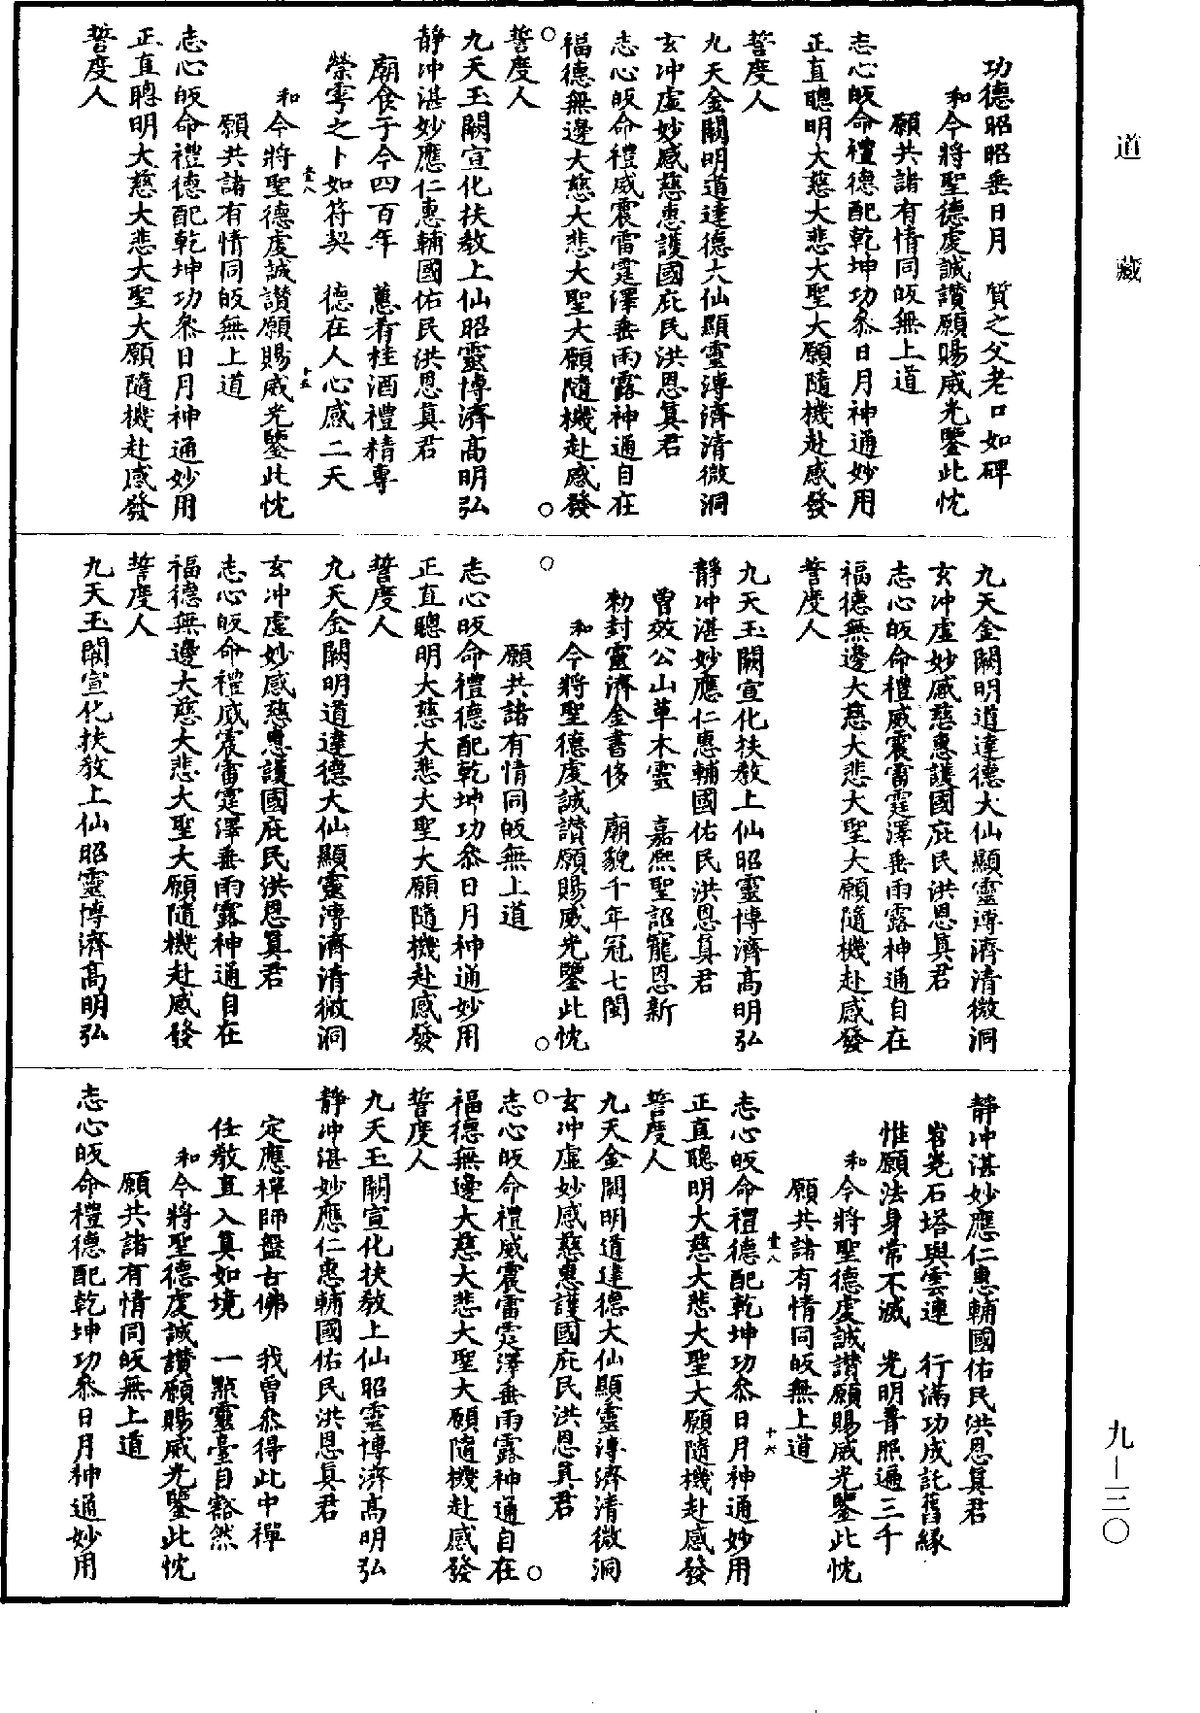 道藏
九—三〇
功德昭昭垂日月　質之父老口如碑
和今將聖德虔誠讚願賜威光鑒此忱
願共諸有情同皈無上道
志心皈命禮德配乾坤功叅日月神通妙用
正直聰明大慈大悲大聖大願隨機赴感發
誓度人
九天金闕明道達德大仙顯靈溥濟清微洞
玄冲虛妙感慈惠護國庇民洪恩真君
志心皈命禮威震雷霆澤垂雨露神通自在
福德無邊大慈大悲大聖大願隨機赴感發
誓度人
九天玉闕宣化扶教上仙昭靈博濟高明弘
靜冲湛妙應仁惠輔國佑民洪恩真君
廟食于今四百年　蕙肴桂酒禮精專
禜雩之卜如符契　德在人心感二天
和今將聖德虔誠讚願賜威光鑒此忱
壹八　十五
願共諸有情同皈無上道
志心皈命禮德配乾坤功叅日月神通妙用
正直聰明大慈大悲大聖大願隨機赴感發
誓度人
九天金闕明道達德大仙顯靈溥濟清微洞
玄冲虛妙感慈惠護國庇民洪恩真君
志心皈命禮威震雷霆澤垂雨露神通自在
福德無邊大慈大悲大聖大願隨機赴感發
誓度人
九天玉闕宣化扶教上仙昭靈博濟高明弘
靜冲湛妙應仁惠輔國佑民洪恩真君
曾效公山草木靈　嘉熈聖詔寵恩新
勑封靈濟金書侈　廟貌千年冠七閩
和今將聖德虔誠讚願賜威光鑒此忱
願共諸有情同皈無上道
志心皈命禮德配乾坤功叅日月神通妙用
正直聰明大慈大悲大聖大願隨機赴感發
誓度人
九天金闕明道達德大仙顯靈溥濟清微洞
玄冲虛妙感慈惠護國庇民洪恩真君
志心皈命禮威震雷霆澤垂雨露神通自在
福德無邊大慈大悲大聖大願隨機赴感發
誓度人
九天玉闕宣化扶教上仙昭靈博濟高明弘
靜冲湛妙應仁惠輔國佑民洪恩真君
岧嶤石塔與雲連　行滿功成託舊緣
惟願法身常不滅　光明普照遍三千
和今將聖德虔誠讚願賜威光鑒此忱
願共諸有情同皈無上道
壹八　十六
志心皈命禮德配乾坤功叅日月神通妙用
正直聰明大慈大悲大聖大願隨機赴感發
誓度人
九天金闕明道達德大仙顯靈溥濟清微洞
玄冲虛妙感慈惠護國庇民洪恩真君
志心皈命禮威震雷霆澤垂雨露神通自在
福德無邊大慈大悲大聖大願隨機赴感發
誓度人
九天玉闕宣化扶教上仙昭靈博濟高明弘
靜冲湛妙應仁惠輔國佑民洪恩真君
定應禪師盤古佛　我曾叅得此中禪
任教直入真如境　一點靈臺自豁然
和今將聖德虔誠讚願賜威光鑒此忱
願共諸有情同皈無上道
志心皈命禮德配乾坤功叅日月神通妙用